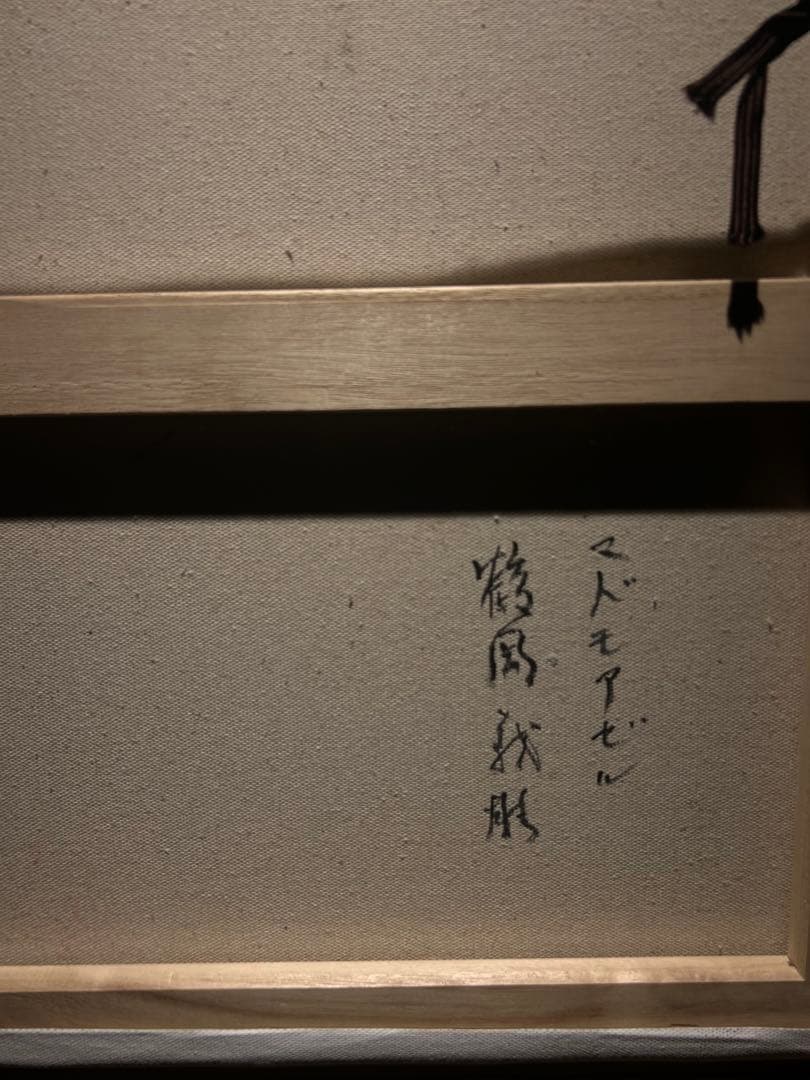 マドモアゼル
鶴岡義雄